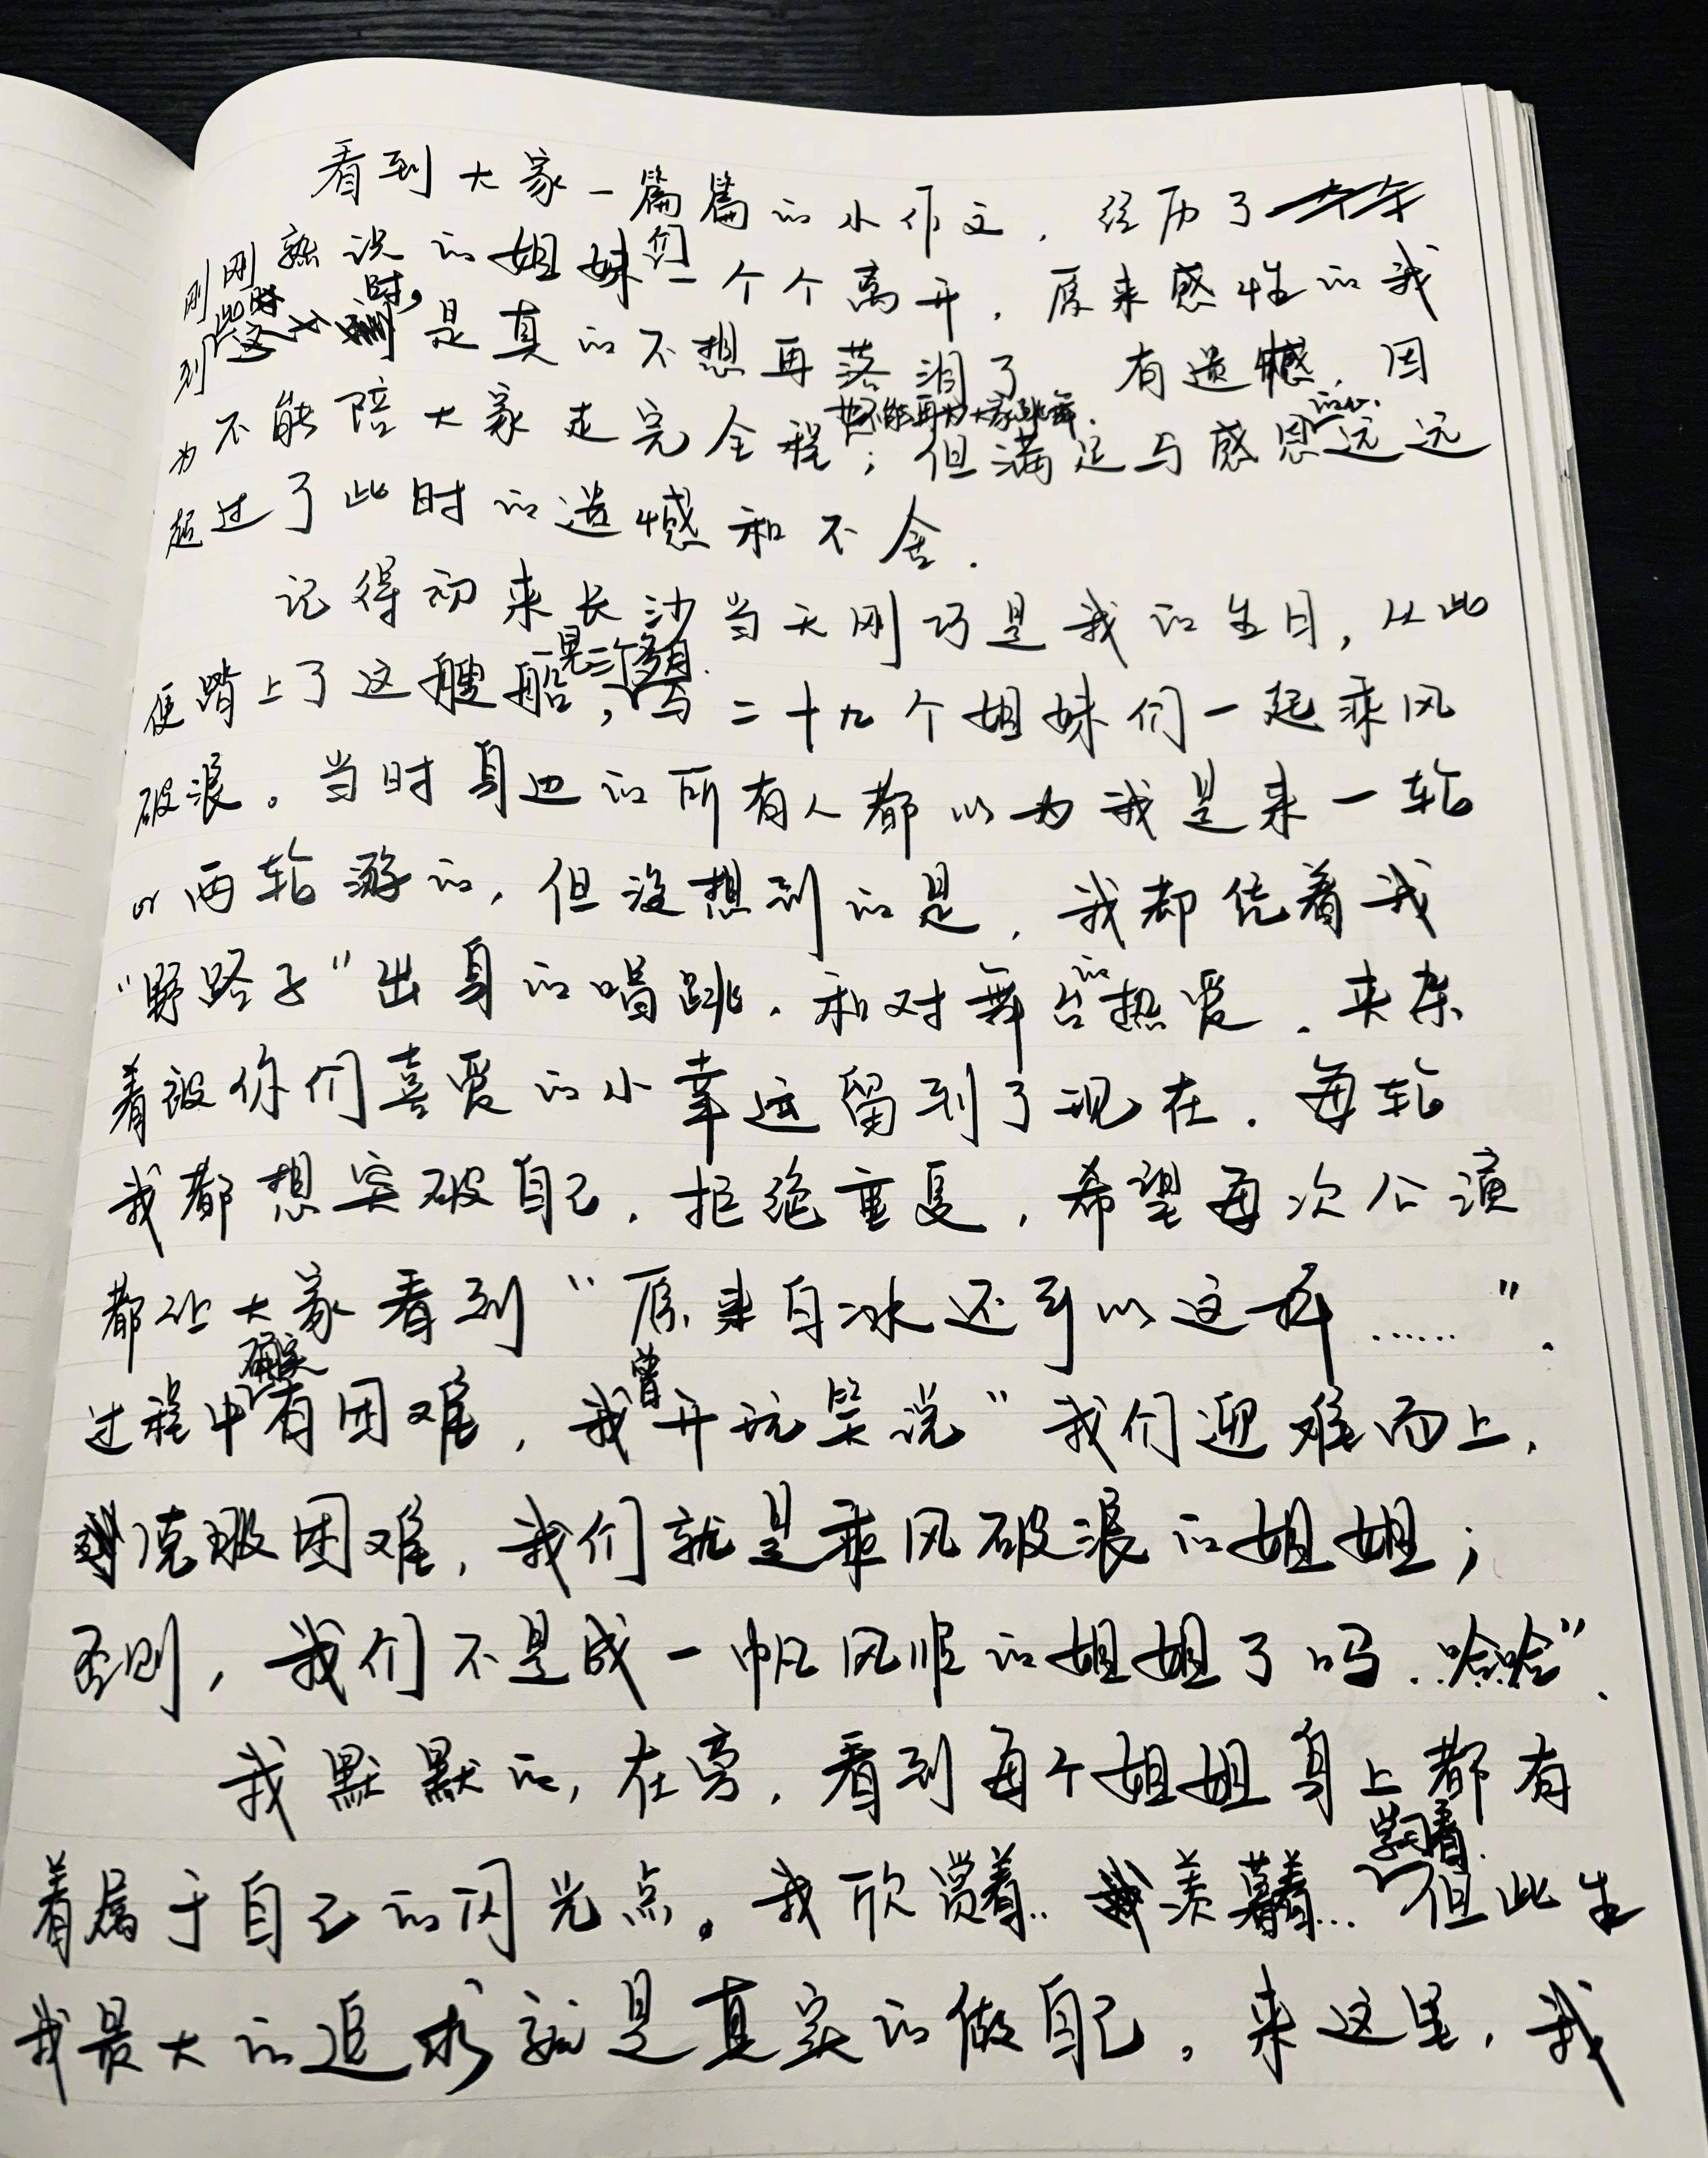 看到大家一篇篇的小作文，经历了
刚刚熟识的姐妹们一个个离开，原来感性的我
到此时时，是真的不想再落泪了 有遗憾，因
为不能陪大家走完全程，也不能再为大家跳舞；但满足与感恩的心远远
超过了此时的遗憾和不舍.
记得初来长沙当天刚巧是我的生日，从此
便踏上了这艘船，一晃三个多月.与二十九个姐妹们一起乘风
破浪。当时身边的所有人都以为我是来一轮
or两轮游的，但没想到的是，我却凭着我
“野路子”出身的唱跳，和对舞台的热爱，夹杂
着被你们喜爱的小幸运留到了现在．每轮
我都想突破自己，拒绝重复，希望每次公演
都让大家看到“原来白冰还可以这样……”.
过程中确实有困难，我曾开玩笑说“我们迎难而上，
克服困难，我们就是乘风破浪的姐姐；
否则，我们不是成一帆风顺的姐姐了吗..哈哈”.
我默默的，在旁，看到每个姐姐身上都有
着属于自己的闪光点。我欣赏着..羡慕着...学习着.但此生
我最大的追求就是真实的做自己。来这里，我